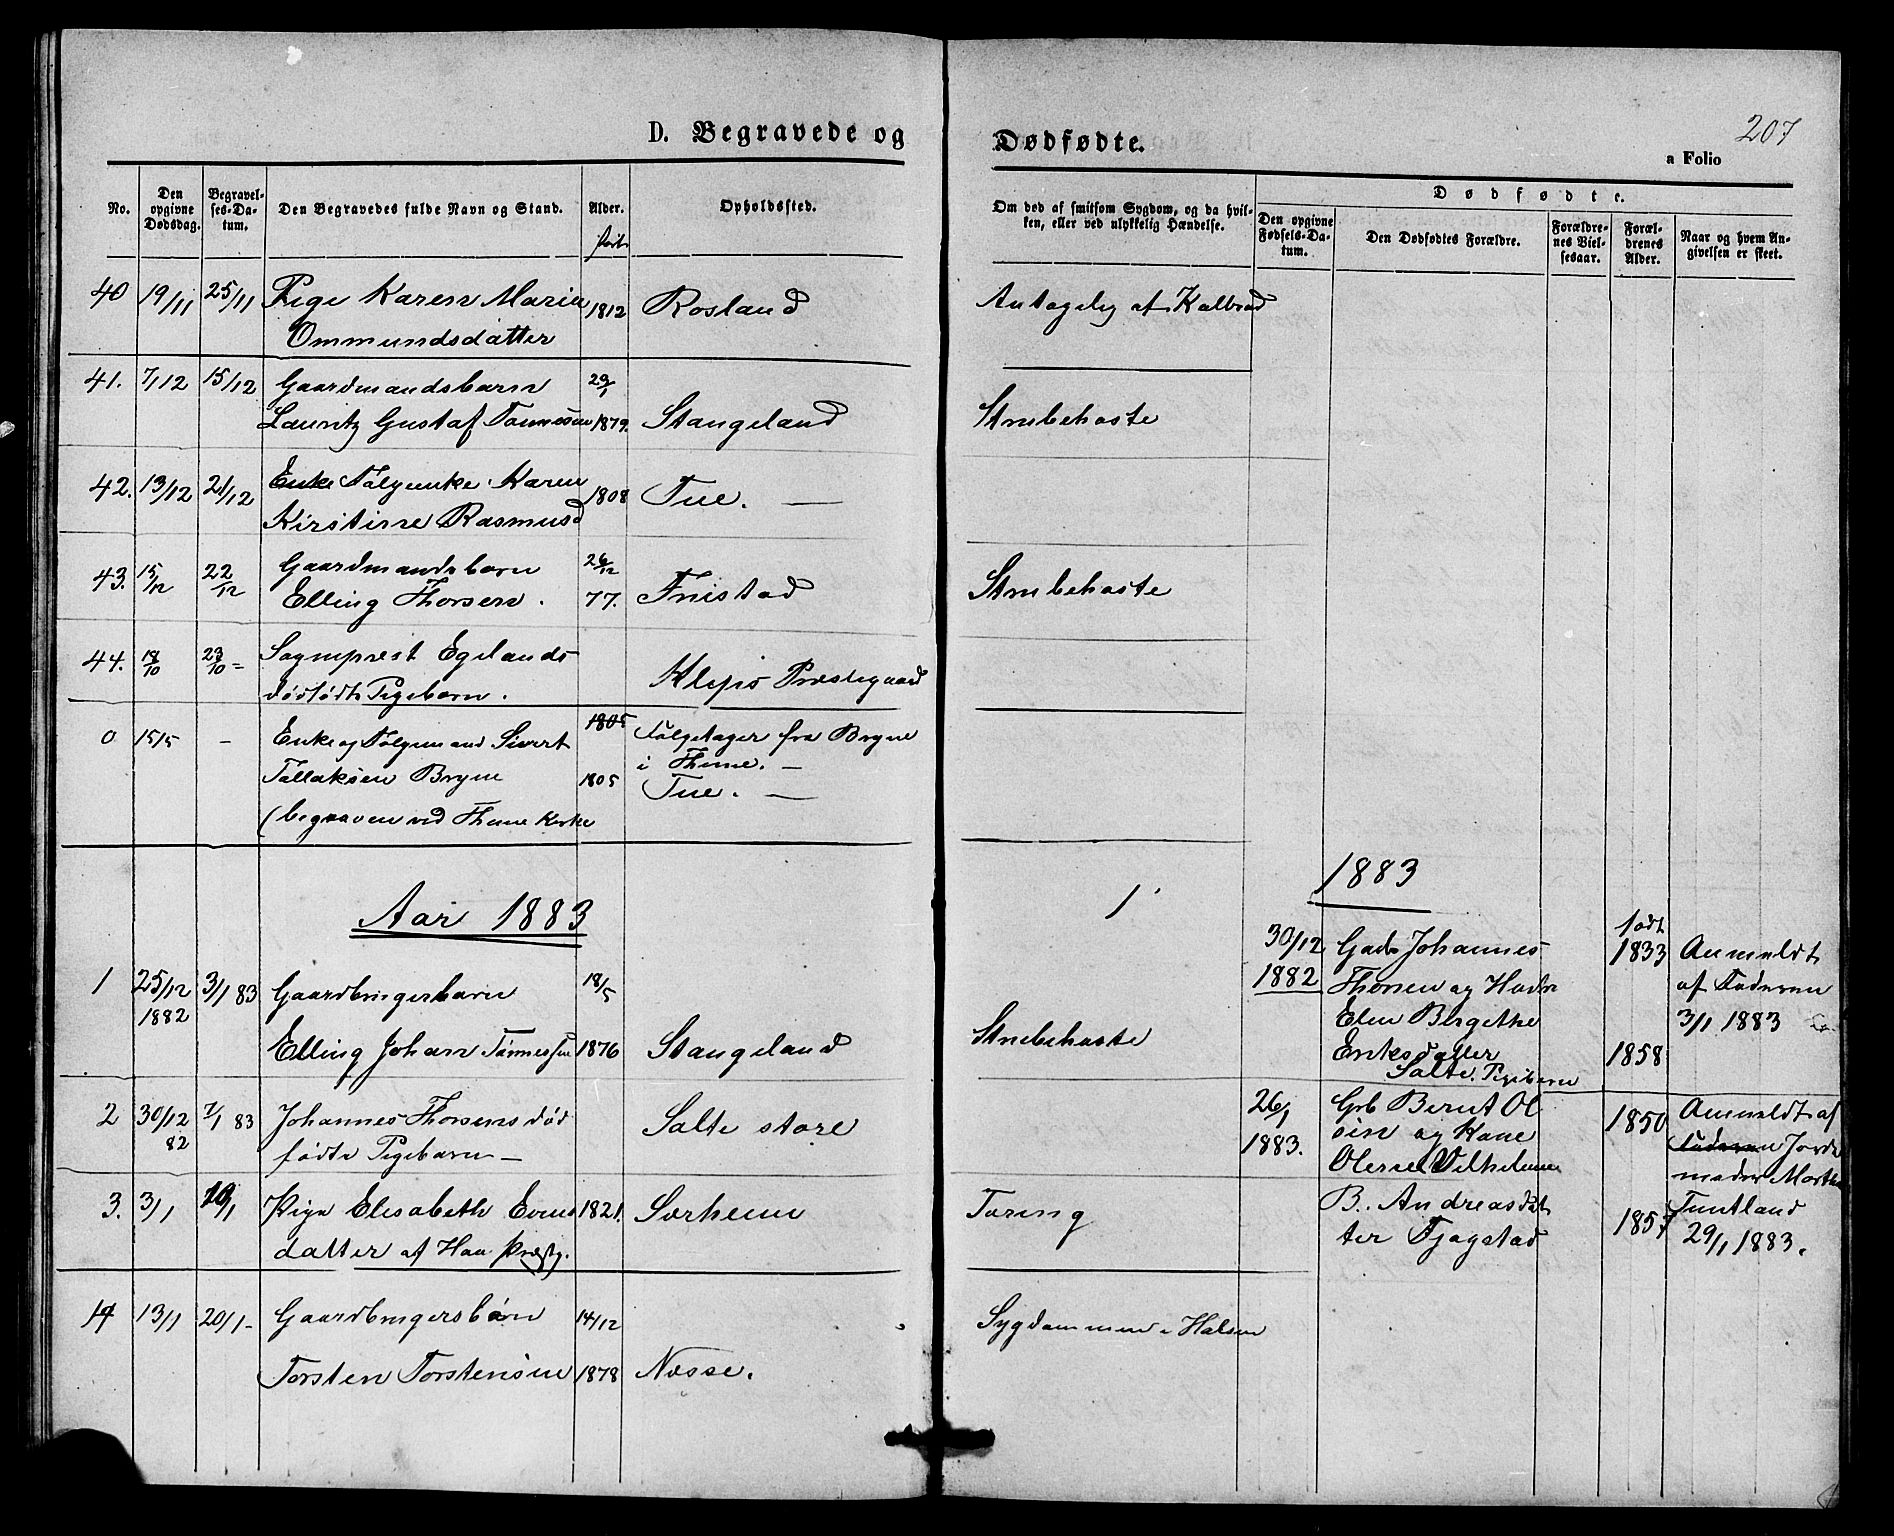 D. Begravede og Dødfødte.
207
a Folio
No.
Den opgivne Dødsdag.
Begravelses-Datum.
Den Begravedes fulde Navn og Stand.
Alder.
Opholdssted.
Om død af smitsom Sygdom, og da hvilken, eller ved ulykkelig Hændelse.
Dødfødte.
Den opgivne Fødsels-Datum.
Den Dødfødtes Forældre.
Forældrenes Vielsesaar.
Forældrenes Alder.
Naar og hvem Angivelsen er skeet.
40 19/11 25/11 Pige Karen Maria 1812 Rosland Antagelig af Kolbrand
Ommundsdatter
41. 7/12 15/12 Gaardmandsbarn 29/1
Lauritz Gustaf Tønnesen 1879. Stangeland Strubehoste
42. 13/12 21/12 Enke Følgeenke Karen 1808 Tue. —
Kirstine Rasmusd
43. 15/12 22/12 Gaardmandsbarn 26/12
Elling Thorsen. 77. Friistad Strubehoste
44. 18/10 23/10 = Sogneprest Egelands
dødfødte Pigebarn. Klepps Præstegaard
0 15/5 - Enke og Følgemand Sivert 1805 Følgetager fra Bryne
i Thime. —
Tollaksen Bryne 1805 Tue. —
(begraven ved Thime Kirke
Aar 1883
1 25/12 1882 3/1 83 Gaardbrugerbarn 18/5
Elling Johan Tønnessen 1876 Stangeland Strubehoste
2 30/12 82 7/1 83 Johannes Thorsens død
fødte Pigebarn — Salte store
3. 3/1 10/1 Pige Elisabeth Evens 1821. Sørheim Tæring
datter af Haa Præstg.
4 13/1 20/1 - Gaardbrugersbørn 14/12 Sygdommen i Halsen
Torsten Torstensen 1878 Nesse.
1883
1
30/12 1882 Gads Johannes
Thorsen og Hustr
Elen Bergethe
Eriksdatter
Salte. Pigebarn
født
1833
1858
Anmeldt
af Faderen
3/1 1883
26/1 1883. Grb Bernt Ol
sen og Kone
Olene Vilhelmine
B. Andreasdat
ter Tjøgstad
1850
1857
Anmeldt af
Faderen Jorde
moder Martha
Tuntland
29/1 1883.